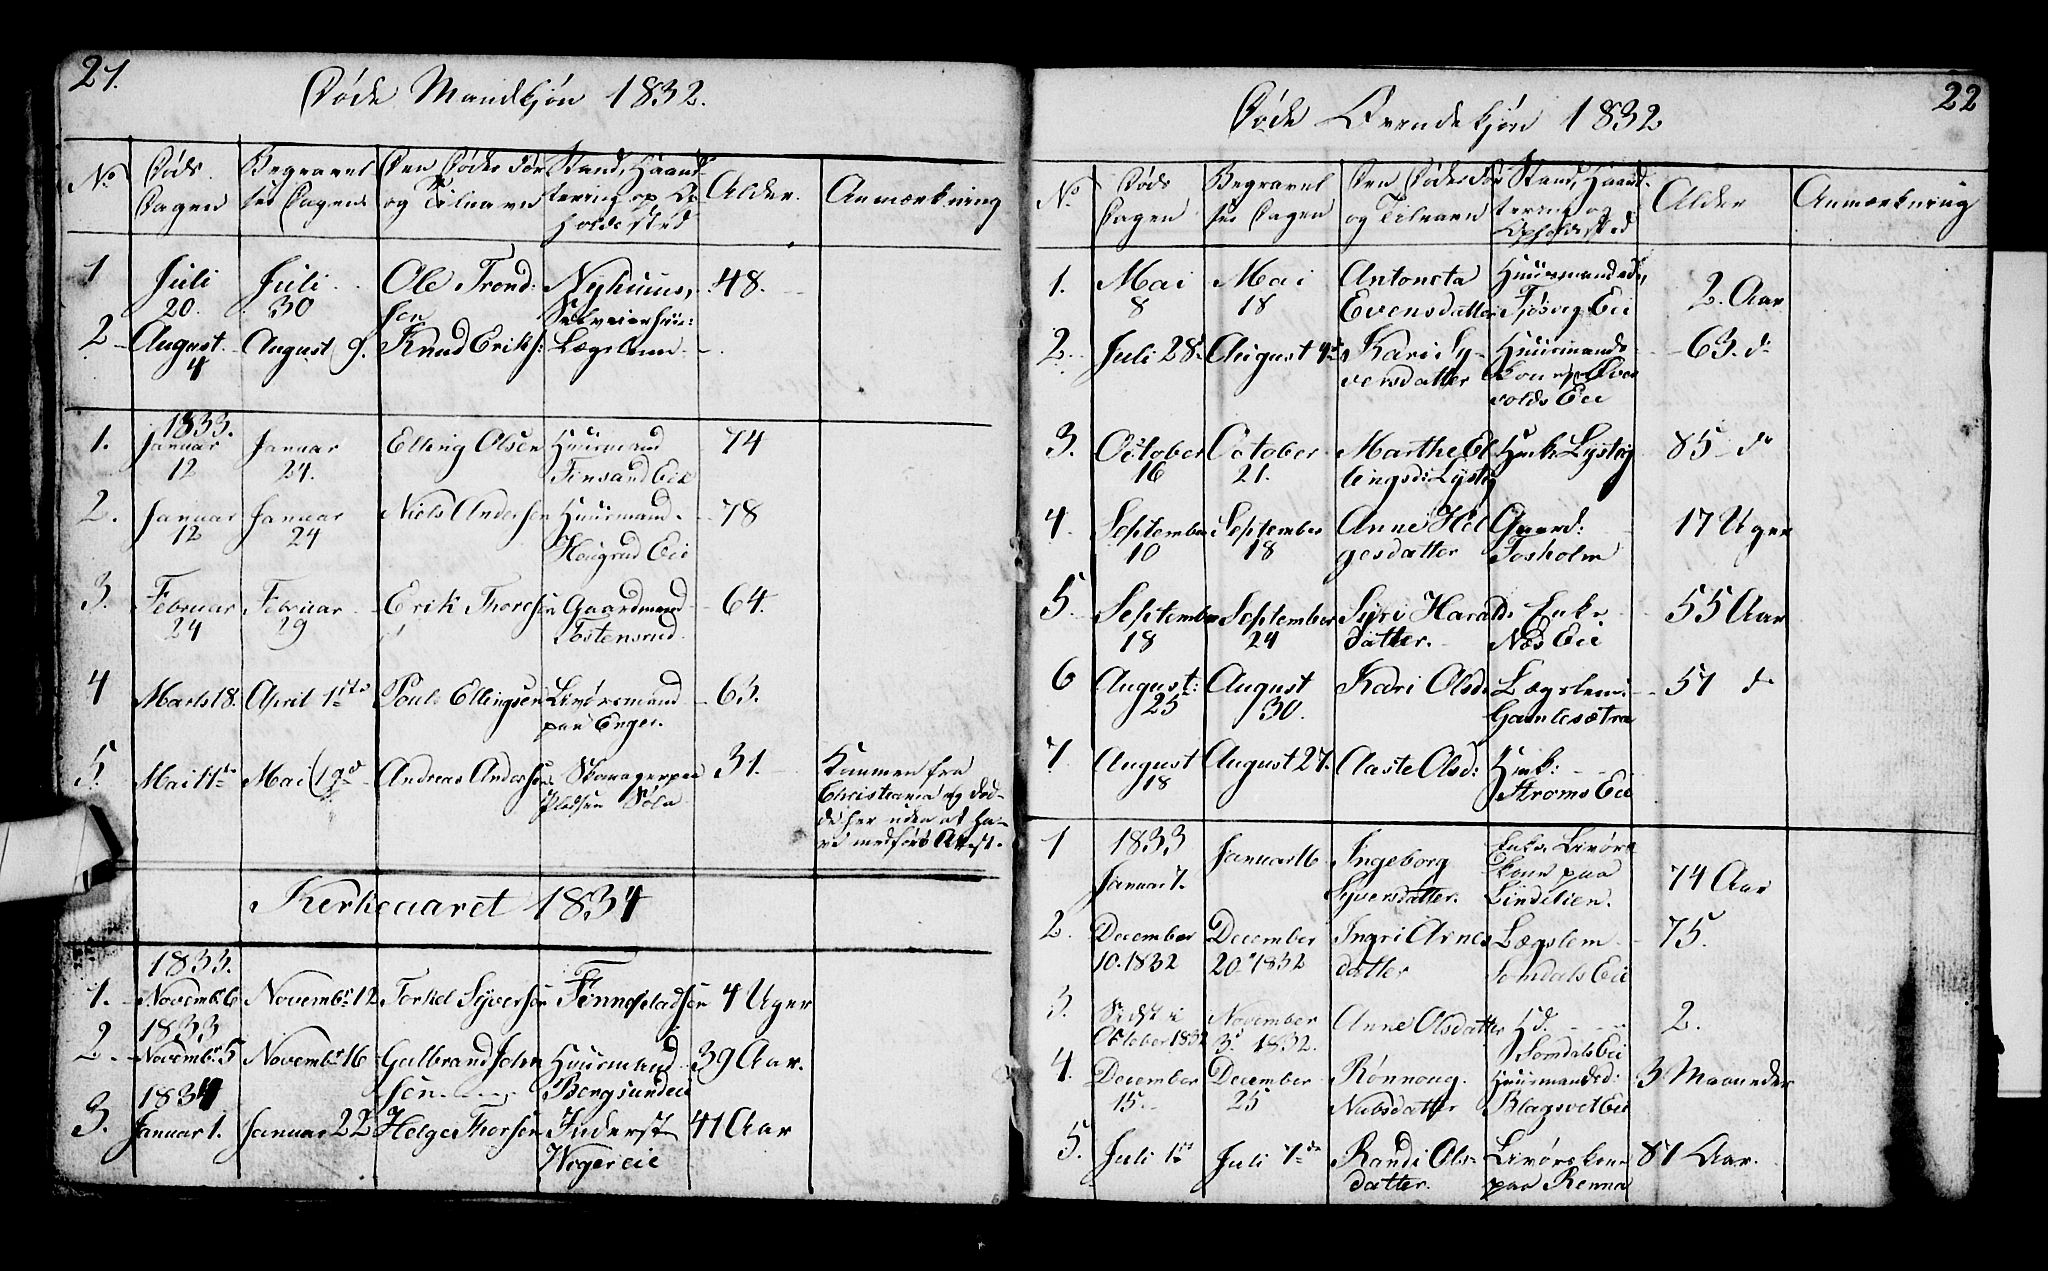 21.
Døde Mandkjøn 1832.
No
Døds Dagen
Begravelses Dagen
Den Dødes For og Tilnavn
Stand, Haandtering og Opholdssted
Alder.
Anmærkning
1 Juli 20. Juli 30 Ole Trondsen Nyhuus, 48.
2 August 4 August 9. Knud Eriks: Lægslem
1833.
1. Januar 12 Januar 24. Elling Olsen Huusmand Finsand Eie 74
2. Januar 12 Januar 24 Niels Andersen Huusmand Haugrud Eie 78
3. Februar 24 Februar 29 Erik Thoresen Gaardmand Tostensrud 64.
4 Marts 18. April 1ste Poul Ellingsen Livøresmand paa Enger. 63.
5. Mai 1ste Mai Andreas Andersen Skomager paa Pladsen 31. Kommen fra
Christiania og død-
de her uden at ha-
ve medført Attest.
Kirkeaaret 1834
1833.
1. Novemb. 6 Novembr 12 Torkel Syversen Finnepladsen 4 Uger
1833
2. Novembr 5 Novembr 16 Gulbrand Johnsen Huusmand Bergsundeie 39 Aar.
1834
3. Januar 1. Januar 22 Helge Thorsen Inderst Wagereie 41 Aar
22
Døde Qvindekjøn 1832
No
Døds Dagen
Begravelses Dagen
Den Dødes For og Tilnavn
Stand, Haandtering og Opholdssted
Alder
Anmærkning
1. Mai 8 Mai 18 Antoneta Evensdatter Huusmandsd. Tjøsvig Eie 2. Aar
2. Juli 28 August 4de Kari Syversdatter Huusmandskone Eie 63. do
3. October 16 October 21. Marthe Ellingsd: Lystig Husk. Lystig 85 do
4. September 10 September 18 Anne Helgesdatter Gaard: Tosholm 17 Uger
5. September 18 September 24 Syri Haraldsdatter. Enke Næs Eie 55 Aar
6 August 25 August 30. Kari Olsd. Lægslem Gamlesætra 57 do
7. August 18 August 27. Aaste Olsd: Husk: Strøms Eie
1833
1 Januar 7. Januar 16 Ingeborg Syversdatter. Enke Livørskone paa Lindelien. 74 Aar
2. December 10. 1832 December 20. 1832 Ingri Arnesdatter Lægslem Somdals Eie 75.
3. Sidst i October 1832 November 3. 1832. Anne Olsdatter Hd. Somdals Eie 2.
4. December 15. December 25 Rønnoug Nubsdatter Huusmandsd: Klagsvet Eie 3 Maaneder
5. Juli 1ste Juli 7de Randi Olsdatter. Livørskone paa Renna 87 Aar.